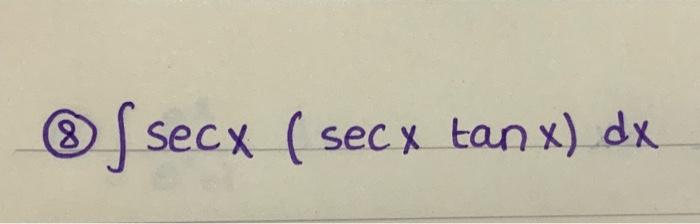 ⑧ ∫ secx ( secx tanx) dx